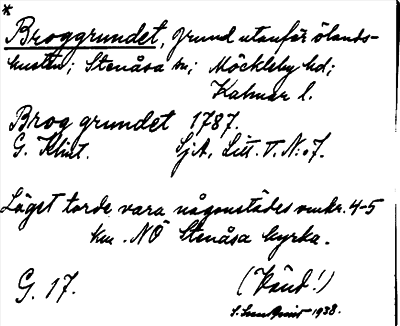 *
Broggrundet, grund utanför ölands-
kusten; Stenåsa sn; Möckleby hd;
Kalmar l.
Brog grundet 1787.
G. Klint. SjA, Litt. V. N:o 7.
Läget torde vara någonstädes omkr. 4-5
km. NÖ Stenåsa kyrka.
G. 17. (Vänd!)
S. Sundquist 1938.